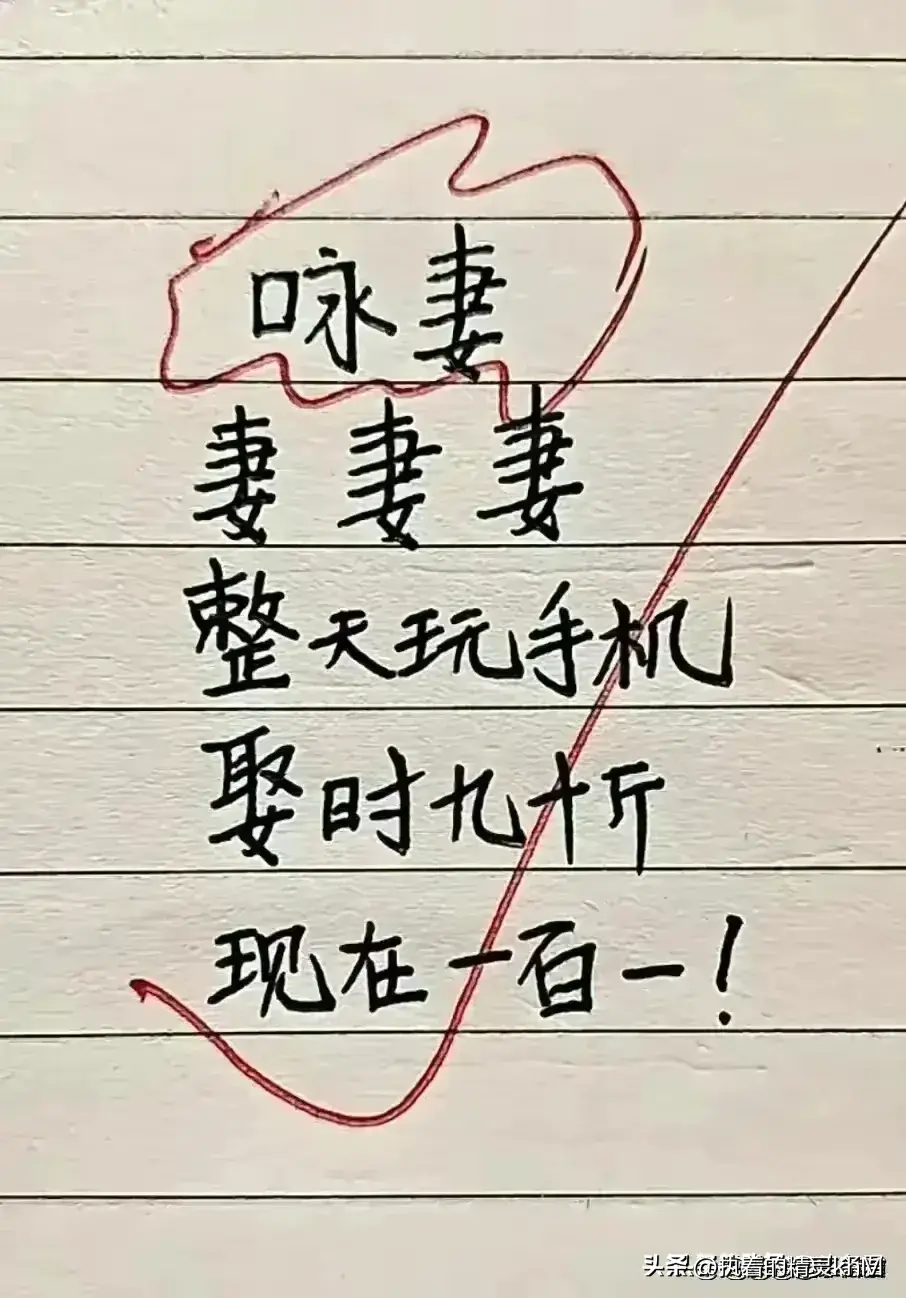 咏妻
妻妻妻
整天玩手机
娶时九十斤
现在一百一!
头条 @执着的精灵